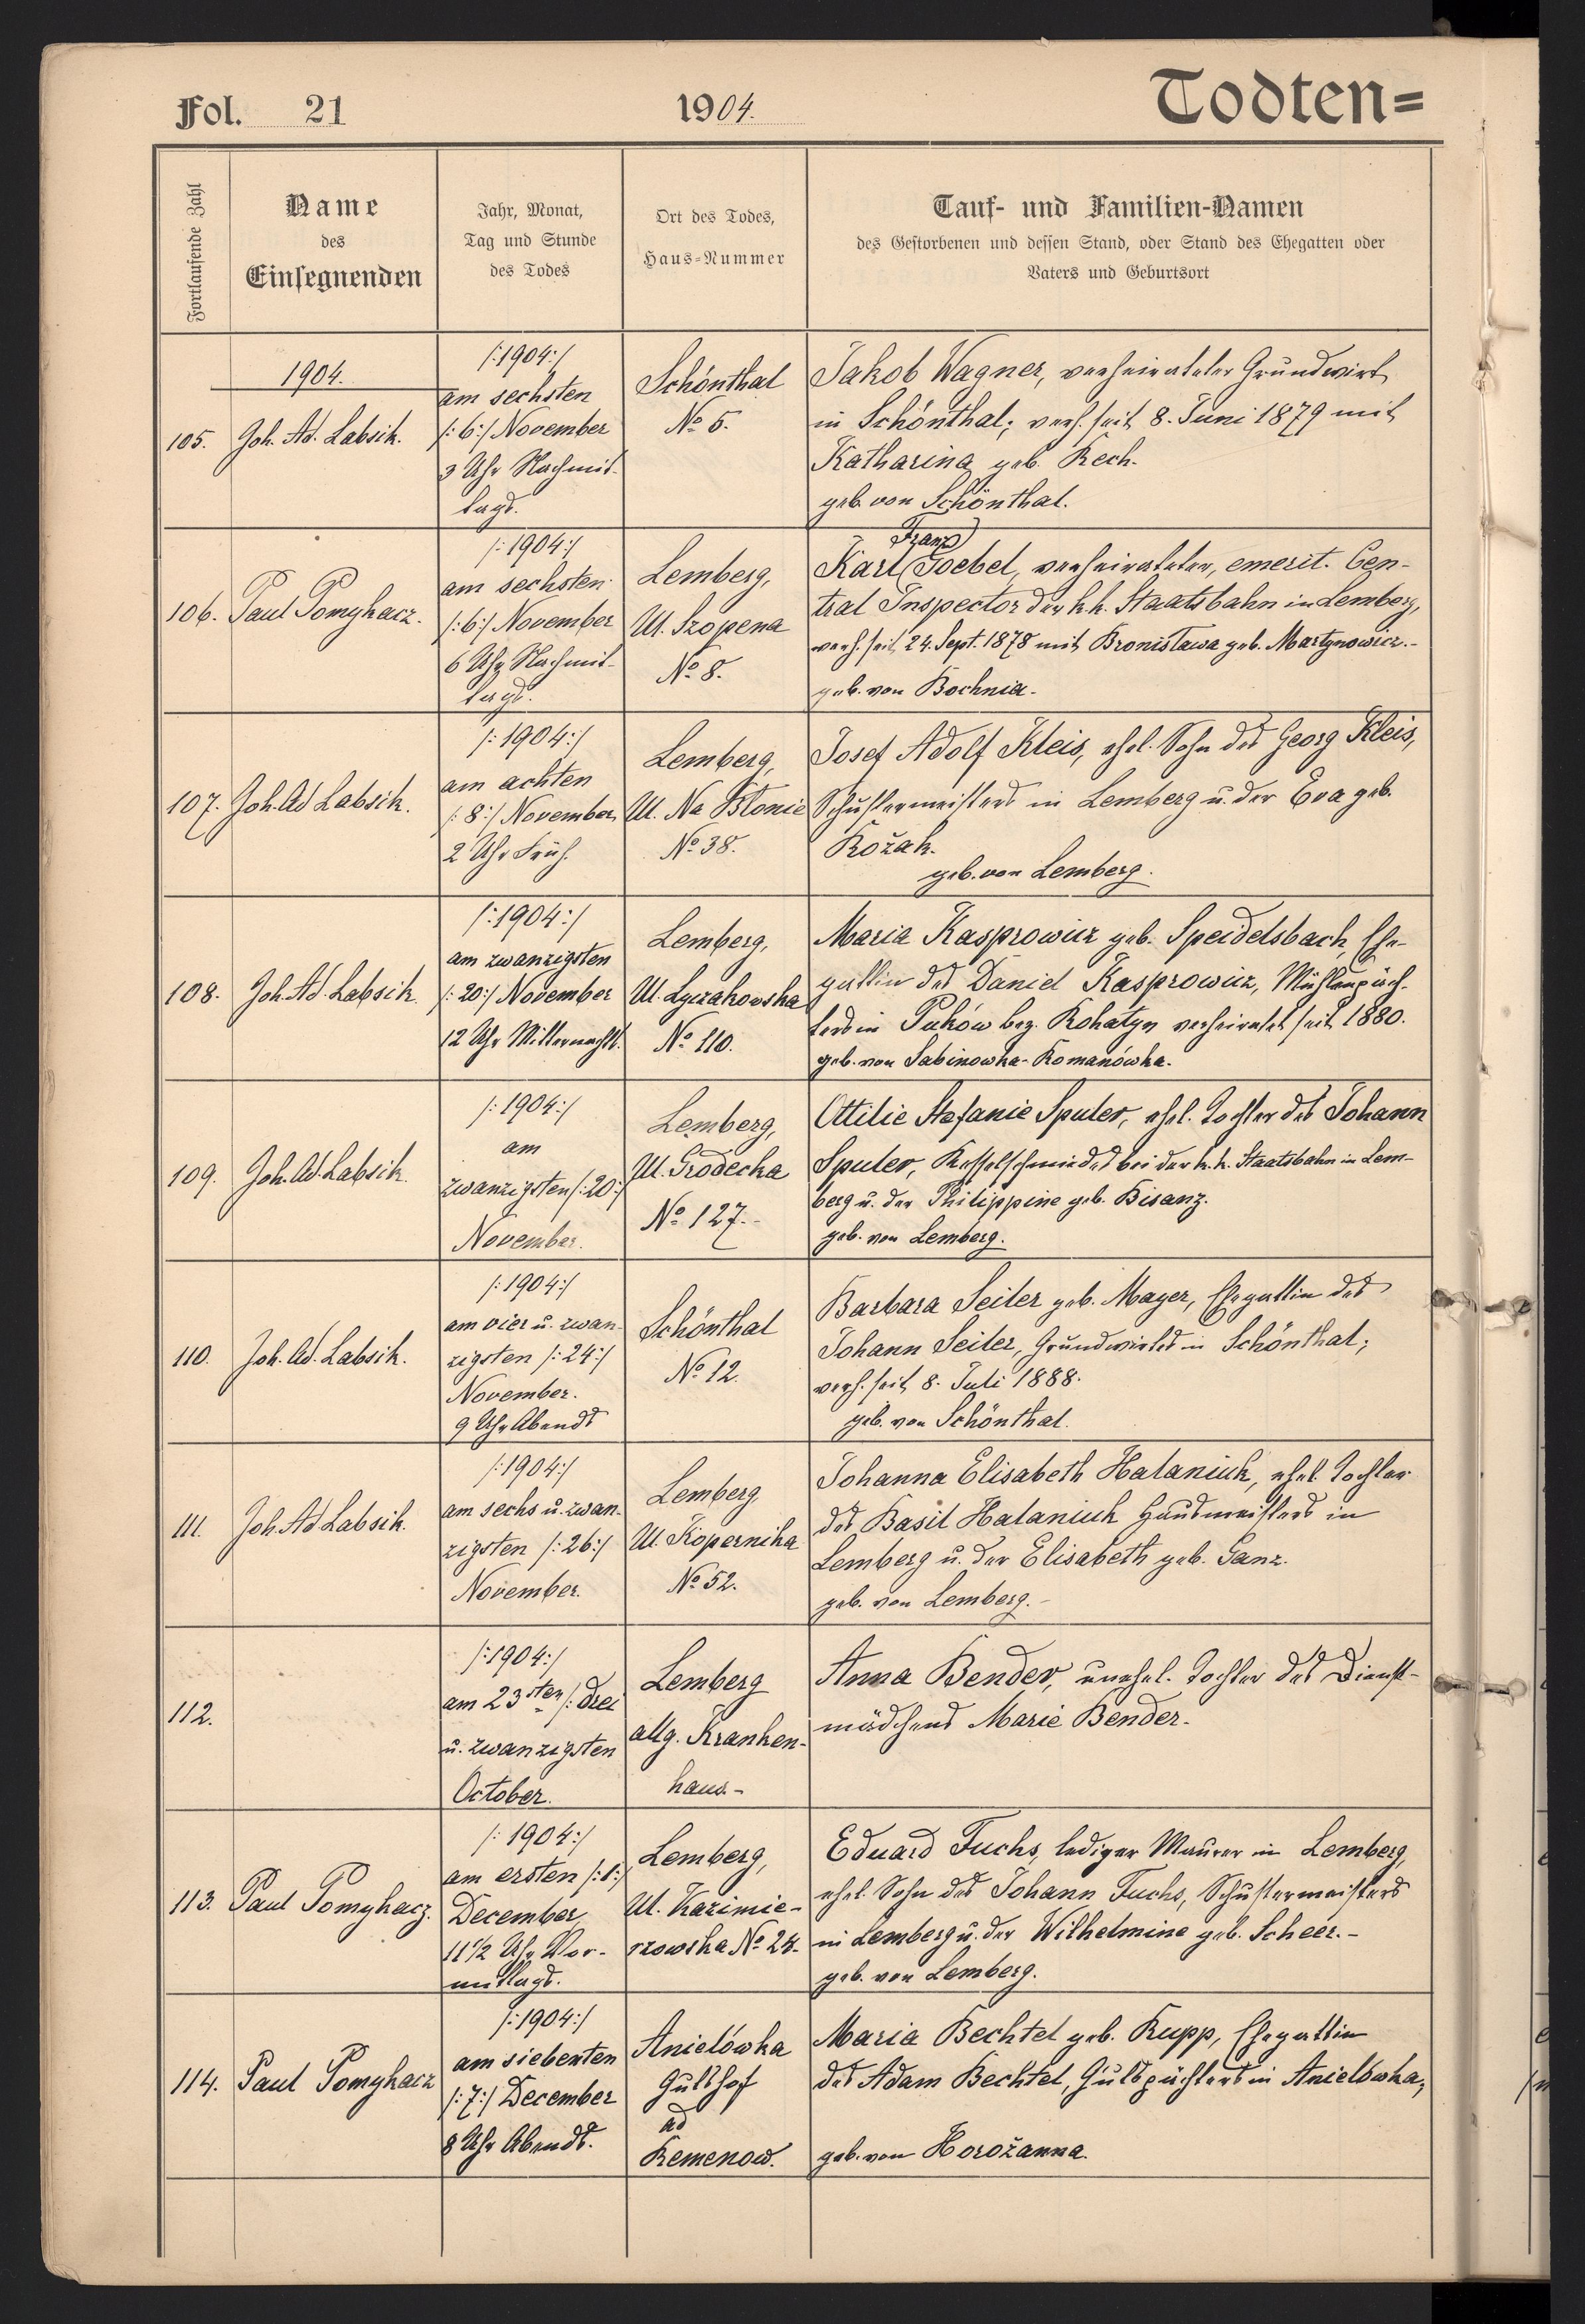 Fol. 21
1904.
Todten=
Fortlaufende Zahl
Name
des
Einsegnenden
Jahr, Monat,
Tag und Stunde
des Todes
Ort des Todes,
Haus-Nummer
Tauf- und Familien-Namen
des Gestorbenen und dessen Stand, oder Stand des Ehegatten oder
Vaters und Geburtsort
1904.
105.
Joh. Ad. Labsik.
/:1904:/
am sechsten
/:6:/ November
3 Uhr Nachmit-
tags.
Schönthal
No 5.
Jakob Wagner, verheirateter Grundwirt
in Schönthal; verh. seit 8. Juni 1879 mit
Katharina geb. Rech.
geb. von Schönthal.
106.
Paul Pomykacz.
/:1904:/
am sechsten
/:6:/ November
6 Uhr Nachmit-
tags.
Lemberg,
Ul. Szopena
No 8.
Franz
Karl (Goebel, verheirateter, emerit. Cen-
tral Inspector der k.k. Staatsbahn in Lemberg,
verh. seit 24. Sept. 1878 mit Bronisława geb. Martynowicz.-
geb. von Bochnia.
107.
Joh. Ad Labsik.
/:1904:/
am achten
/:8:/ November
2 Uhr Früh.
Lemberg,
Ul. Na Błonie
No 38.
Josef Adolf Kleis, ehel. Sohn des Georg Kleis,
Schustermeisters in Lemberg u. der Eva geb.
Kožak.
geb. von Lemberg.
108.
Joh. Ad. Labsik.
/:1904:/
am zwanzigsten
/:20:/ November
12 Uhr Mitternacht.
Lemberg,
Ul. Lyczakowska
No 110.
Maria Kasprowicz geb. Speidelsbach, Ehe-
gattin des Daniel Kasprowicz, Mühlenpäch-
ters in Puków bez. Rohatyn verheiratet seit 1880.
geb. von Sabinowka-Romanówka.
109.
Joh. Ad. Labsik.
/:1904:/
am
zwanzigsten /:20:/
November.
Lemberg,
Ul. Grodecka
No 127.-
Ottilie Stefanie Spuler, ehel. Tochter des Johann
Spuler, Kesselschmiedes bei der k.k. Staatsbahn in Lem-
berg u. der Philippine geb. Bisanz.
geb. von Lemberg.
110.
Joh. Ad. Labsik.
/:1904:/
am vier u. zwan-
zigsten /:24:/
November.
9 Uhr Abends
Schönthal
No 12.
Barbara Seiler geb. Mayer, Ehegattin des
Johann Seiler, Grundwirtes in Schönthal;
verh. seit 8. Juli 1888.
geb. von Schönthal.
111.
Joh. Ad Labsik.
/:1904:/
am sechs u. zwan-
zigsten /:26:/
November.
Lemberg
Ul. Kopernika
No 52.
Johanna Elisabeth Hataniuk, ehel. Tochter
des Basil Hataniuk Hausmeisters in
Lemberg u. der Elisabeth geb. Ganz.
geb. von Lemberg.-
112.
/:1904:/
am 23sten /:drei
u. zwanzigsten
October.
Lemberg
allg. Kranken-
haus.-
Anna Bender, unehel. Tochter des Dienst-
mädchens Marie Bender.
113.
Paul Pomykacz.
/:1904:/
am ersten /:1:/
December
11 1/2 Uhr Vor-
mittags.
Lemberg,
Ul. Kazimie-
rzowska No 24.
Eduard Fuchs, lediger Maurer in Lemberg,
ehel. Sohn des Johann Fuchs, Schustermeisters
in Lemberg u. der Wilhelmine geb. Scheer.-
geb. von Lemberg.
114.
Paul Pomykacz
/:1904:/
am siebenten
/:7:/ December
8 Uhr Abends.
Anielówka
Gutshof
ad
Remenow.
Maria Bechtel geb. Rupp, Ehegattin
des Adam Bechtel, Gutspächters in Anielówka,
geb. von Horožanna.